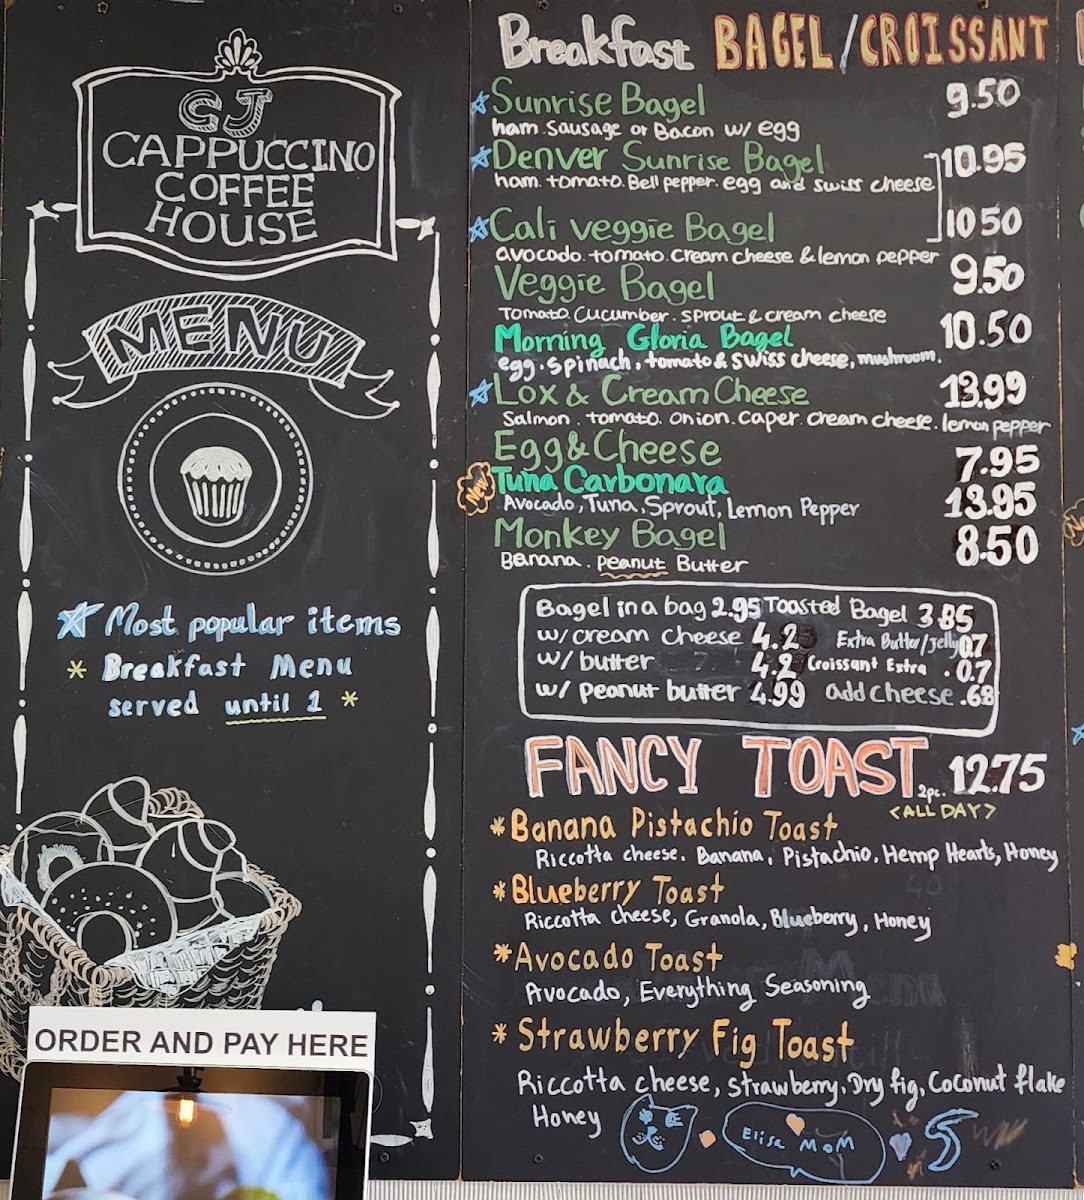 CJ
CAPPUCCINO
COFFEE
HOUSE
MENU
Most popular items
* Breakfast Menu
served until 1 *
ORDER AND PAY HERE
Breakfast BAGEL/CROISSANT
Sunrise Bagel 9.50
ham. Sausage or Bacon w/ egg
Denver Sunrise Bagel 10.95
ham. tomato. Bell pepper. egg and swiss cheese
Cali veggie Bagel 10.50
avocado. tomato. cream cheese & lemon pepper
Veggie Bagel 9.50
Tomato. Cucumber. sprout & cream cheese
Morning Gloria Bagel 10.50
egg. spinach, tomato & swiss cheese, mushroom.
Lox & Cream Cheese 13.99
Salmon. tomato. onion. caper. cream cheese. lemon pepper
Egg & Cheese 7.95
New Tuna Carbonara 13.95
Avocado, Tuna, Sprout, Lemon Pepper
Monkey Bagel 8.50
Banana. peanut Butter
Bagel in a bag 2.95 Toasted Bagel 3.85
w/ cream cheese 4.2 Extra Butter/Jelly 0.7
w/ butter 4.2 Croissant Extra . 0.7
w/ peanut butter 4.99 add cheese .68
FANCY TOAST 2pc. 12.75
<ALL DAY>
* Banana Pistachio Toast
Riccotta cheese. Banana, Pistachio, Hemp Hearts, Honey
* Blueberry Toast
Riccotta cheese, Granola, Blueberry, Honey
* Avocado Toast
Avocado, Everything Seasoning
* Strawberry Fig Toast
Riccotta cheese, Strawberry, Dry fig, Coconut flake
Honey
Elisa MOM